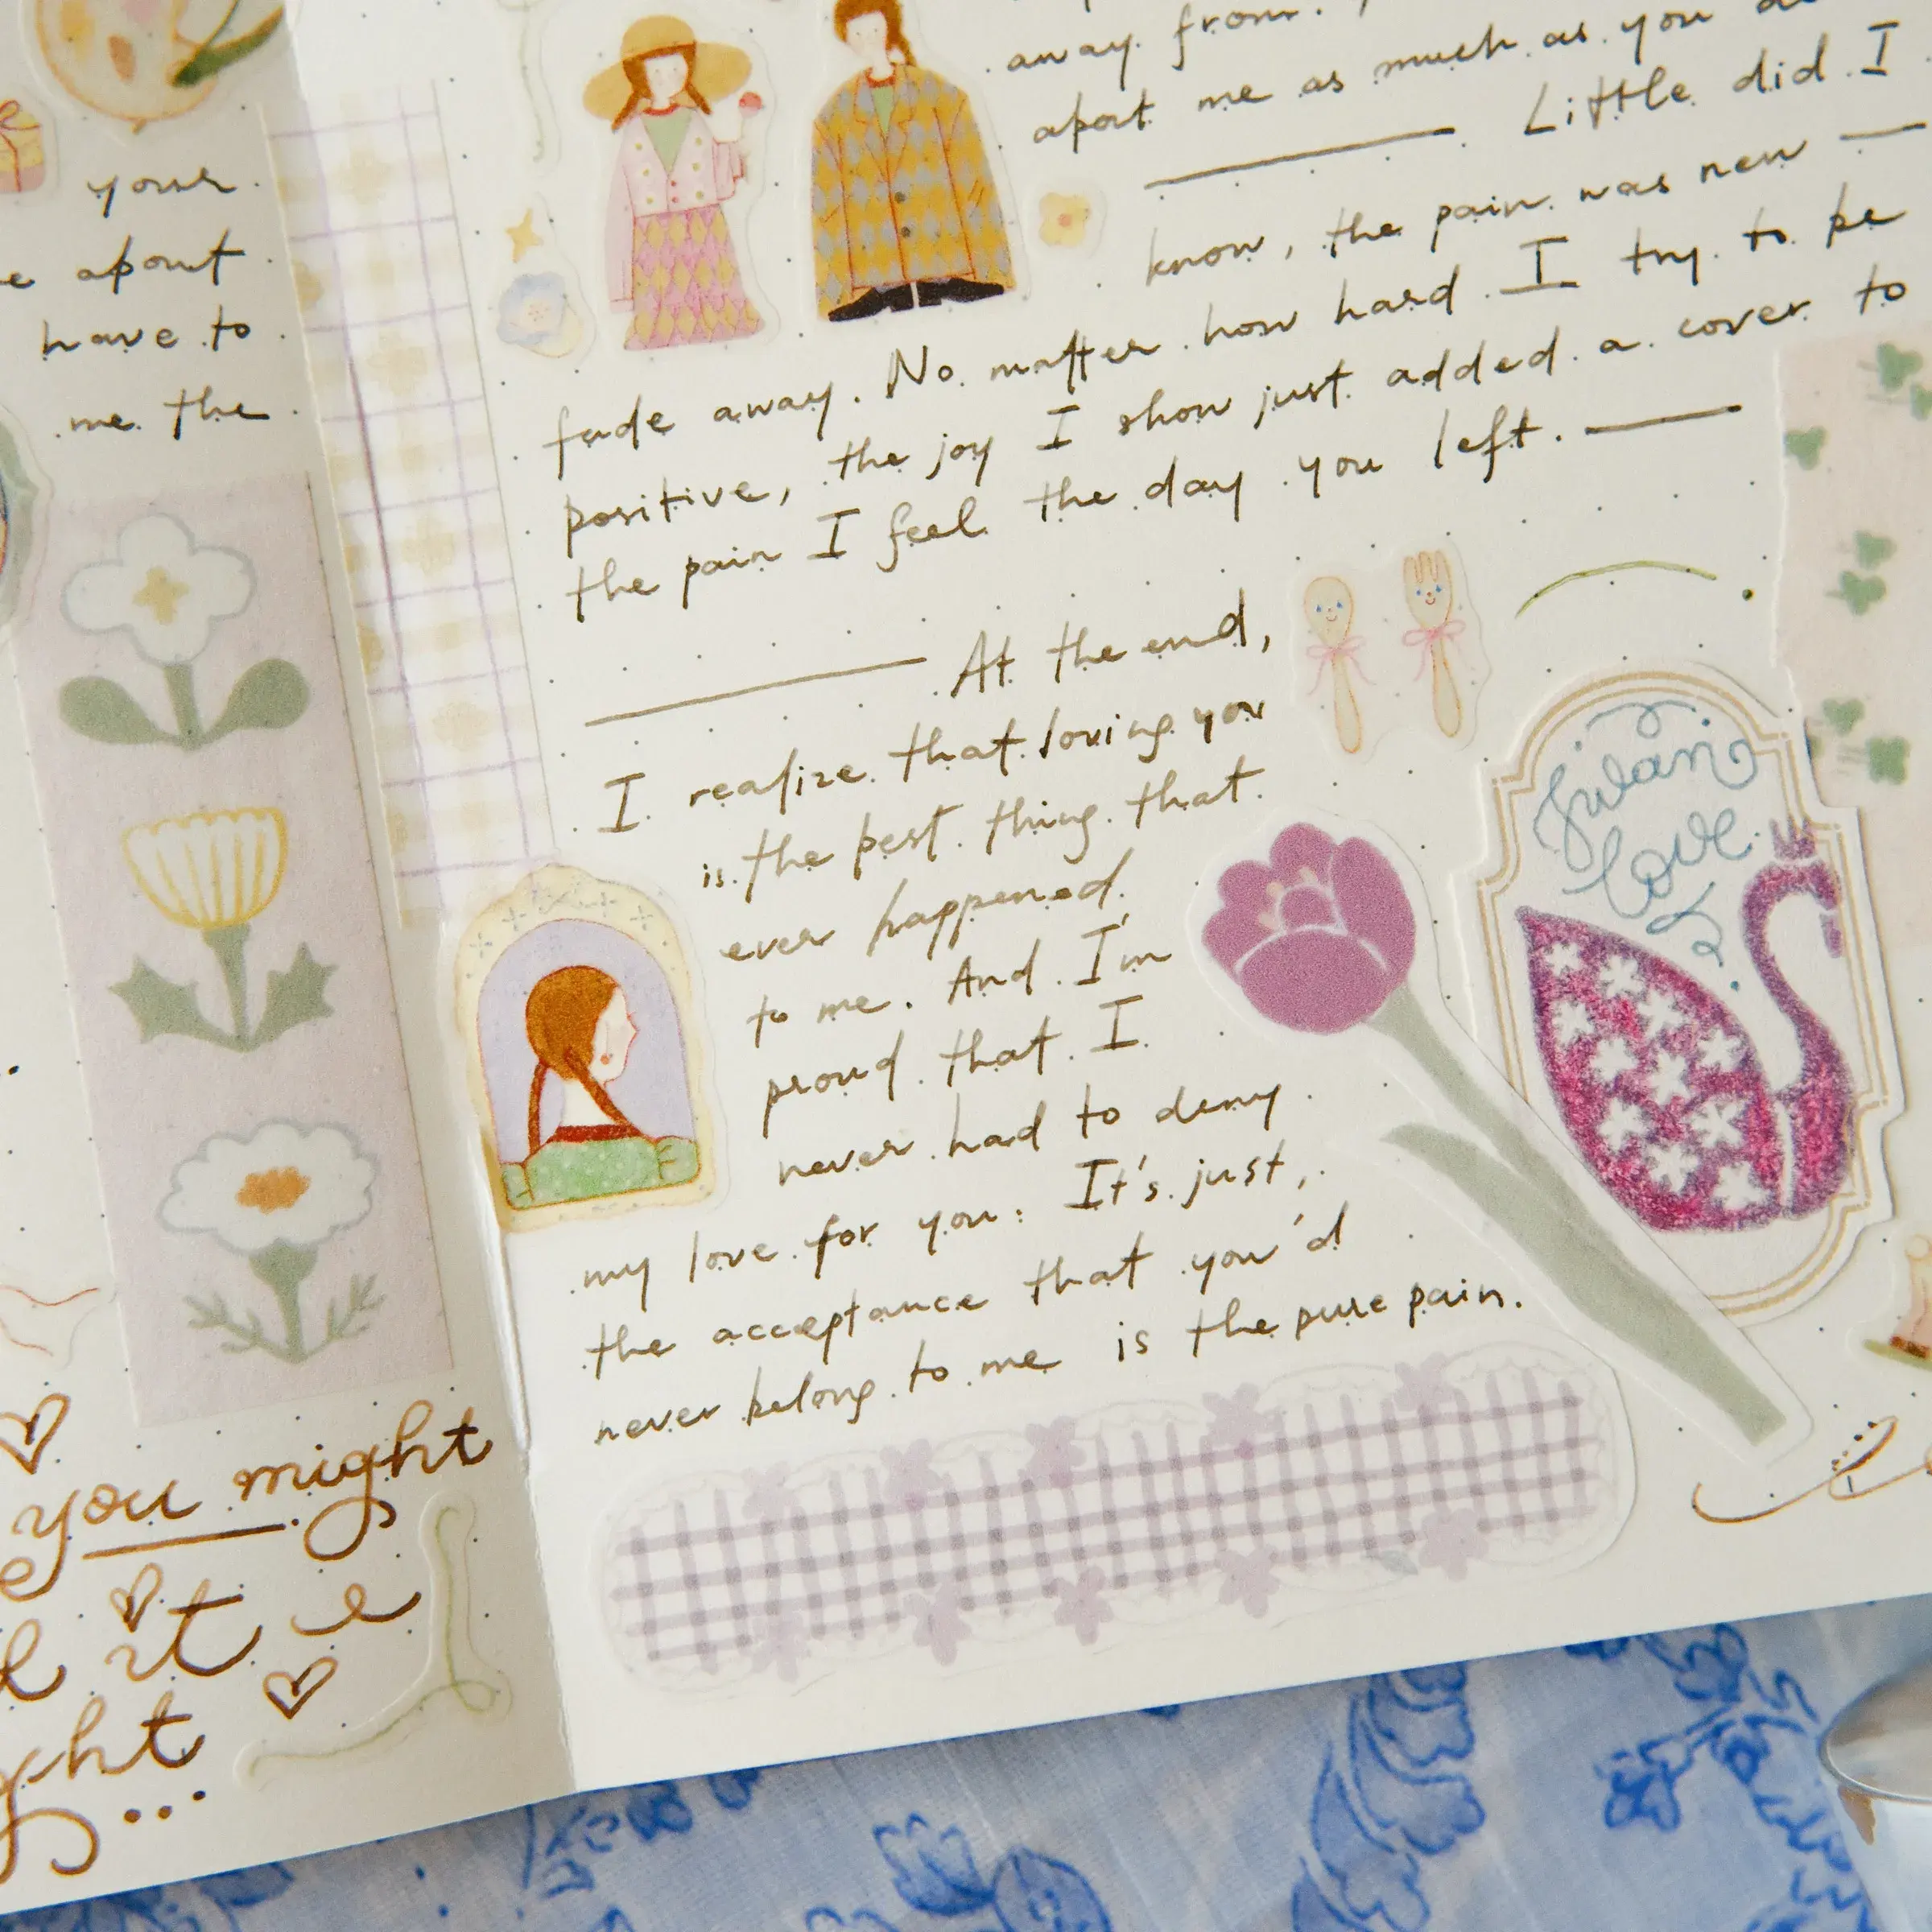 your
about
have to
me the
you might
it
away from.
apart me as much as you
Little did I
know, the pain was new
fade away. No matter how hard I try to be
positive, the joy I show just added a cover to
the pain I feel the day you left.
At the end,
I realize that loving you
is the best thing that
ever happened
to me. And I'm
proud that I
never had to deny
my love for you. It's just,
the acceptance that you'd
never belong to me is the pure pain.
Swan
love